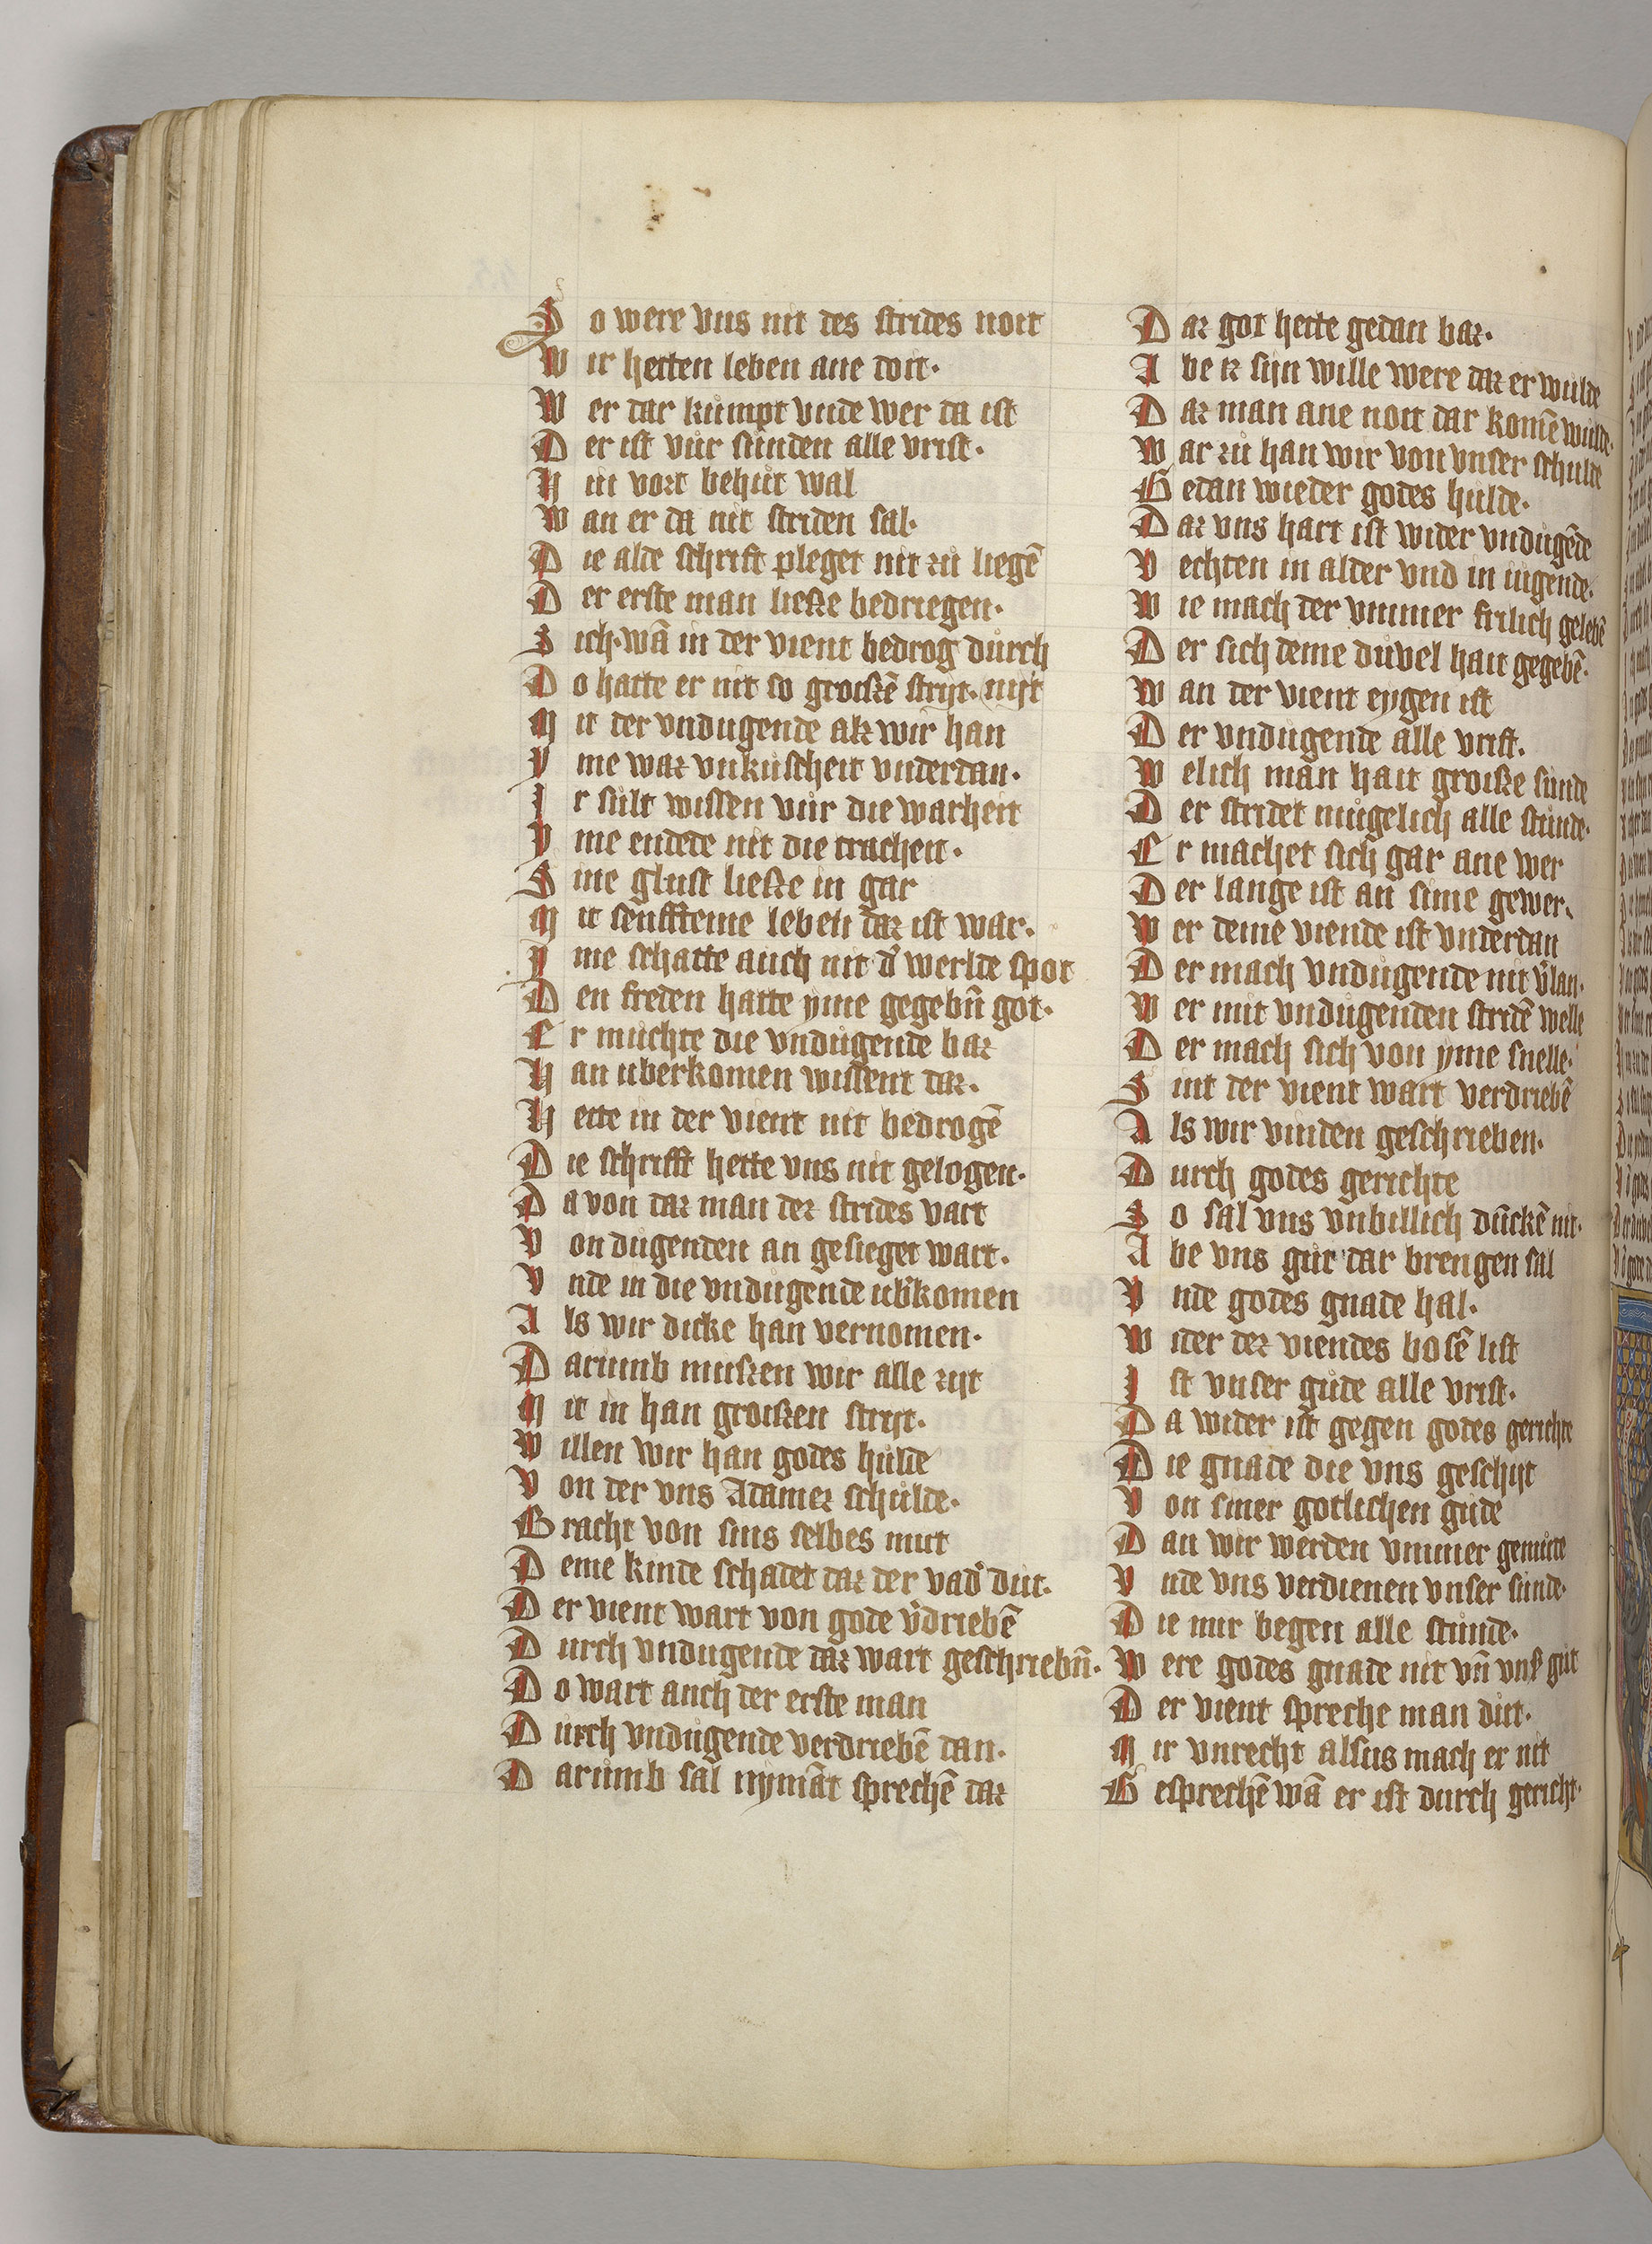 So were vns nit des strides noit
Wir hetten leben ane doit·
Wer dar kumpt vnde wer da ist
Der ist vur sunden alle vrist·
Hin vort behut wal
Wan er da nit striden sal·
Die alde schrift pleget nit zu liegē
Der erste man lieʒe bedriegen·
Sich· wā in der vient bedrog durch
Do hatte er nit so groiʒē strijt· nijt
Mit der vndugende alz wir han
Yme waz vnkuscheit vnderdan·
Ir sult wissen vur die warheit
Yme endede nit die tracheit·
Sine glust lieʒe in gar
Mit senffteme leben daz ist war·
Ime schatte auch nit d' werlde spot
Den freden hatte yme gegebn̄ got·
Er muchte die vndugende baz
Han uberkomen wissent daz·
Hette in der vient nit bedrogē
Die schrifft hette vns nit gelogen·
Da von daz man dez strides vart
Von dugenden an gesieget wart·
Vnde in die vndugende ub'komen
Als wir dicke han vernomen·
Darumb muʒen wir alle zijt
Mit in han groiʒen strijt·
Willen wir han godes hulde
Von der vns Adamez schulde·
Bracht von sins selbes mut
Deme kinde schadet daz der vad' dut·
Der vient wart von gode v'driebē
Durch vndugende daz wart geschriebn̄·
Do wart auch der erste man
Durch vndugende verdriebē dan·
Darumb sal nymāt sprechē daz
Daz got hette gedan baz·
Abe iz sijn wille were daz er wulde
Daz man ane noit dar komē wulde·
War zu han wir von vnser schulde
Gedan wieder godes hulde·
Daz vns hart ist wider vndugēde
Vechten in alder vnd in iugende·
Wie mach der vmmer frilich gelebē
Der sich deme duvel hait gegebē·
Wan der vient eygen ist
Der vndugende alle vrist·
Welich man hait groiʒe sunde
Der stridet mugelich alle stunde·
Er machet sich gar ane wer
Der lange ist an sime gewer·
Wer deme viende ist vnderdan
Der mach vndugende nit v'lan·
Wer mit vndugenden stridē welle
Der mach sich von yme snelle·
Sint der vient wart verdriebē
Als wir vinden geschrieben·
Durch godes gerichte
So sal vns vnbillich dūckē nit·
Abe vns gut dar brengen sal
Vnde godes gnade hal·
Wider dez viendes bosē list
Ist vnser gude alle vrist·
Da wider ist gegen godes gerichte
Die gnade die vns geschijt
Von siner gotlichen gude
Dan wir werden vmmer gemude
Vnde vns verdienen vnser sunde·
Die mir begen alle stunde·
Were godes gnade nit vn̄ vns' gut
Der vient spreche man dut·
Mir vnrecht alsus mach er nit
Gesprechē wā er ist durch gericht·